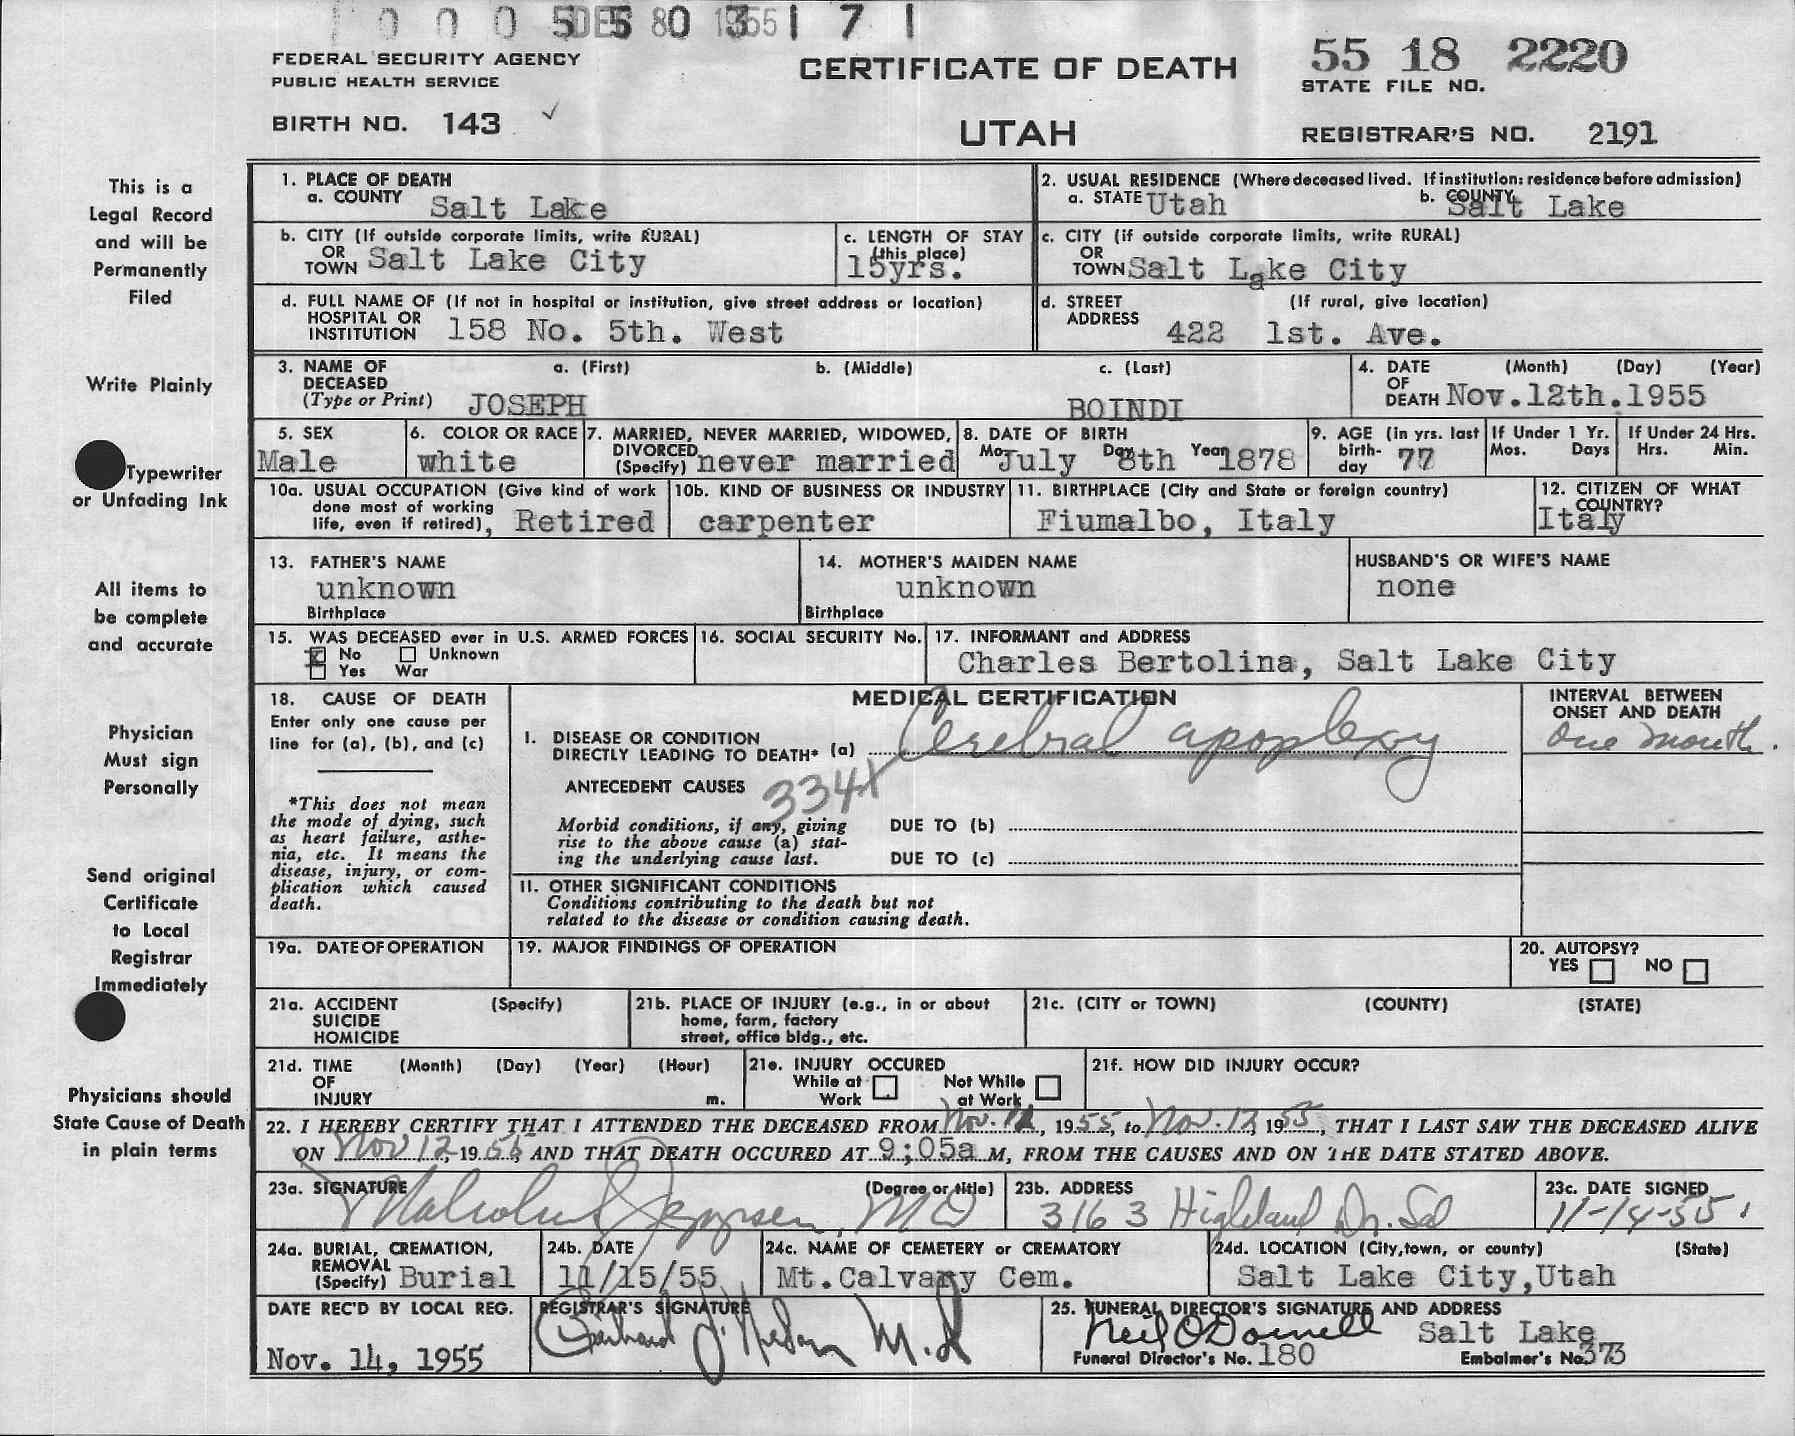 FEDERAL SECURITY AGENCY
PUBLIC HEALTH SERVICE
BIRTH NO. 143
CERTIFICATE OF DEATH
UTAH
55 18 2220
STATE FILE NO.
REGISTRAR'S NO. 2191
This is a
Legal Record
and will be
Permanently
Filed
Write Plainly
Typewriter
or Unfading Ink
All items to
be complete
and accurate
Physician
Must sign
Personally
Send original
Certificate
to Local
Registrar
Immediately
Physicians should
State Cause of Death
in plain terms
1. PLACE OF DEATH
a. COUNTY Salt Lake
2. USUAL RESIDENCE (Where deceased lived. If institution: residence before admission)
a. STATE Utah b. COUNTY Salt Lake
b. CITY (If outside corporate limits, write RURAL)
OR
TOWN Salt Lake City
c. LENGTH OF STAY
(this place)
15yrs.
c. CITY (if outside corporate limits, write RURAL)
OR
TOWN Salt Lake City
d. FULL NAME OF (If not in hospital or institution, give street address or location)
HOSPITAL OR
INSTITUTION 158 No. 5th. West
d. STREET (If rural, give location)
ADDRESS 422 1st. Ave.
3. NAME OF a. (First) b. (Middle) c. (Last)
DECEASED
(Type or Print) JOSEPH BOINDI
4. DATE (Month) (Day) (Year)
OF
DEATH Nov.12th.1955
5. SEX
Male
6. COLOR OR RACE
white
7. MARRIED, NEVER MARRIED, WIDOWED,
DIVORCED
(Specify) never married
8. DATE OF BIRTH
Mo July Day 8th Year 1878
9. AGE (in yrs. last
birth-
day 77
If Under 1 Yr.
Mos. Days
If Under 24 Hrs.
Hrs. Min.
10a. USUAL OCCUPATION (Give kind of work
done most of working
life, even if retired), Retired
10b. KIND OF BUSINESS OR INDUSTRY
carpenter
11. BIRTHPLACE (City and State or foreign country)
Fiumalbo, Italy
12. CITIZEN OF WHAT
COUNTRY?
Italy
13. FATHER'S NAME
unknown
Birthplace
14. MOTHER'S MAIDEN NAME
unknown
Birthplace
HUSBAND'S OR WIFE'S NAME
none
15. WAS DECEASED ever in U.S. ARMED FORCES
No Unknown
Yes War
16. SOCIAL SECURITY No.
17. INFORMANT and ADDRESS
Charles Bertolina, Salt Lake City
18. CAUSE OF DEATH
Enter only one cause per
line for (a), (b), and (c)
*This does not mean
the mode of dying, such
as heart failure, asthe-
nia, etc. It means the
disease, injury, or com-
plication which caused
death.
MEDICAL CERTIFICATION
I. DISEASE OR CONDITION
DIRECTLY LEADING TO DEATH* (a) Cerebral apoplexy
INTERVAL BETWEEN
ONSET AND DEATH
One month.
ANTECEDENT CAUSES 334X
Morbid conditions, if any, giving
rise to the above cause (a) stat-
ing the underlying cause last.
DUE TO (b)
DUE TO (c)
II. OTHER SIGNIFICANT CONDITIONS
Conditions contributing to the death but not
related to the disease or condition causing death.
19a. DATE OF OPERATION
19. MAJOR FINDINGS OF OPERATION
20. AUTOPSY?
YES NO
21a. ACCIDENT (Specify)
SUICIDE
HOMICIDE
21b. PLACE OF INJURY (e.g., in or about
home, farm, factory
street, office bldg., etc.
21c. (CITY or TOWN) (COUNTY) (STATE)
21d. TIME (Month) (Day) (Year) (Hour)
OF
INJURY m.
21e. INJURY OCCURED
While at Not While
Work at Work
21f. HOW DID INJURY OCCUR?
22. I HEREBY CERTIFY THAT I ATTENDED THE DECEASED FROM Nov. 12, 1955, to Nov. 12, 1955, THAT I LAST SAW THE DECEASED ALIVE
ON Nov 12, 1955, AND THAT DEATH OCCURED AT 9:05a M, FROM THE CAUSES AND ON THE DATE STATED ABOVE.
23a. SIGNATURE (Degree or title)
Malcolm Jeppsen, MD
23b. ADDRESS
3163 Highland Dr.
23c. DATE SIGNED
11-14-55
24a. BURIAL, CREMATION,
REMOVAL
(Specify) Burial
24b. DATE
11/15/55
24c. NAME OF CEMETERY or CREMATORY
Mt.Calvary Cem.
24d. LOCATION (City, town, or county) (State)
Salt Lake City,Utah
DATE REC'D BY LOCAL REG.
Nov. 14, 1955
REGISTRAR'S SIGNATURE
M.D
25. FUNERAL DIRECTOR'S SIGNATURE AND ADDRESS
Neil O'Donnell Salt Lake
Funeral Director's No. 180 Embalmer's No. 373